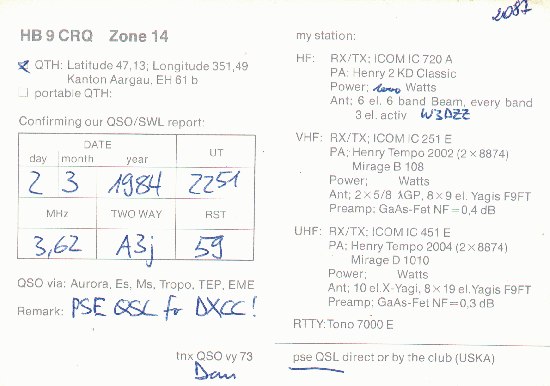 2087
HB 9 CRQ Zone 14
QTH: Latitude 47,13; Longitude 351,49
Kanton Aargau, EH 61 b
portable QTH:
Confirming our QSO/SWL report:
DATE
day month year UT
2 3 1984 2251
MHz TWO WAY RST
3,62 A3j 59
QSO via: Aurora, Es, Ms, Tropo, TEP, EME
Remark: PSE QSL for DXCC!
tnx QSO vy 73
Dan
my station:
HF: RX/TX; ICOM IC 720 A
PA: Henry 2 KD Classic
Power; Watts
Ant; 6 el. 6 band Beam, every band
3 el. activ W3DZZ
VHF: RX/TX; ICOM IC 251 E
PA; Henry Tempo 2002 (2×8874)
Mirage B 108
Power; Watts
Ant; 2×5/8 λGP, 8×9 el. Yagis F9FT
Preamp: GaAs-Fet NF=0,4 dB
UHF: RX/TX; ICOM IC 451 E
PA: Henry Tempo 2004 (2×8874)
Mirage D 1010
Power; Watts
Ant; 10 el.X-Yagi, 8×19 el.Yagis F9FT
Preamp; GaAs-Fet NF=0,3 dB
RTTY: Tono 7000 E
pse QSL direct or by the club (USKA)